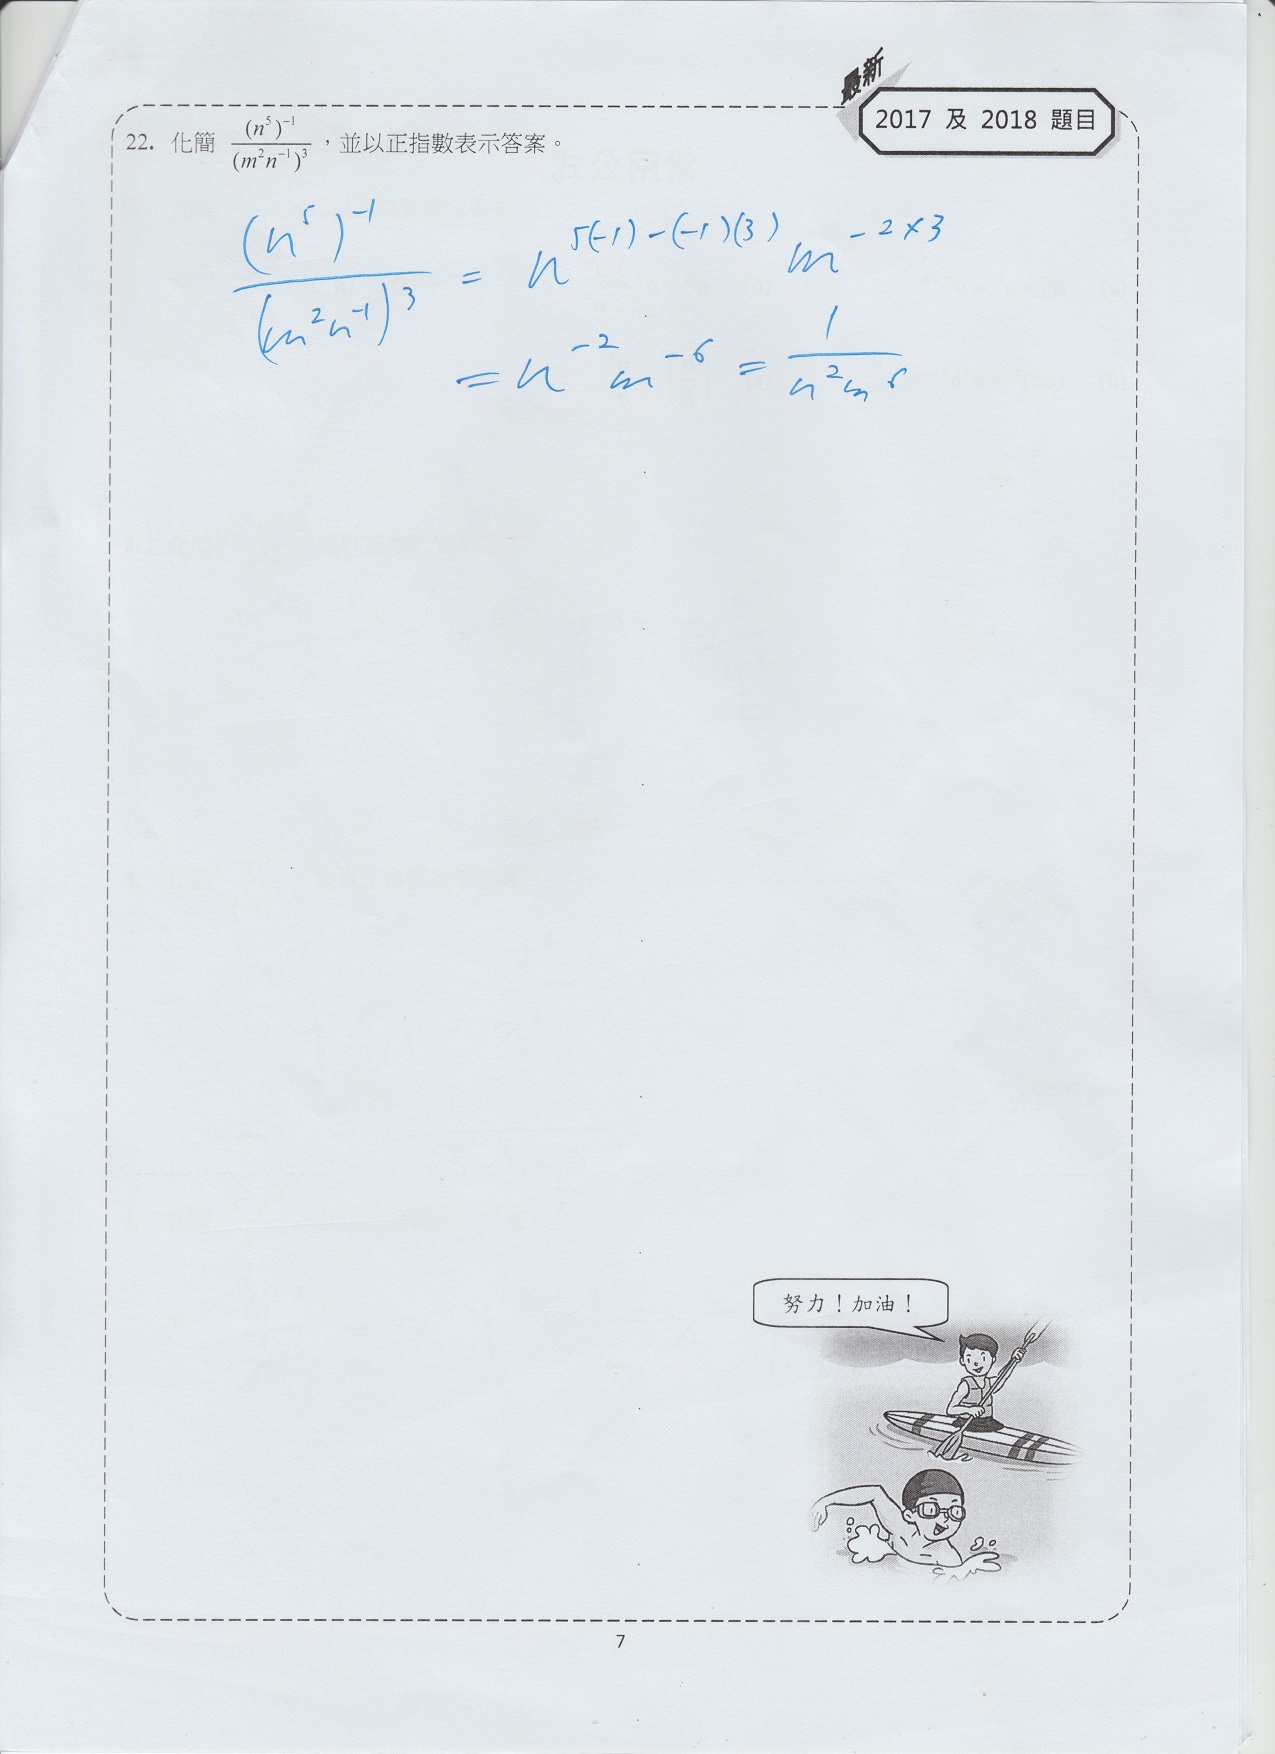 最新
2017 及 2018 題目
22. 化簡 \frac{(n^5)^{-1}}{(m^2n^{-1})^3},並以正指數表示答案。
\frac{(n^5)^{-1}}{(m^2n^{-1})^3} = n^{5(-1)-(-1)(3)} m^{-2×3}
= n^{-2}m^{-6} = \frac{1}{n^2m^6}
努力!加油!
7